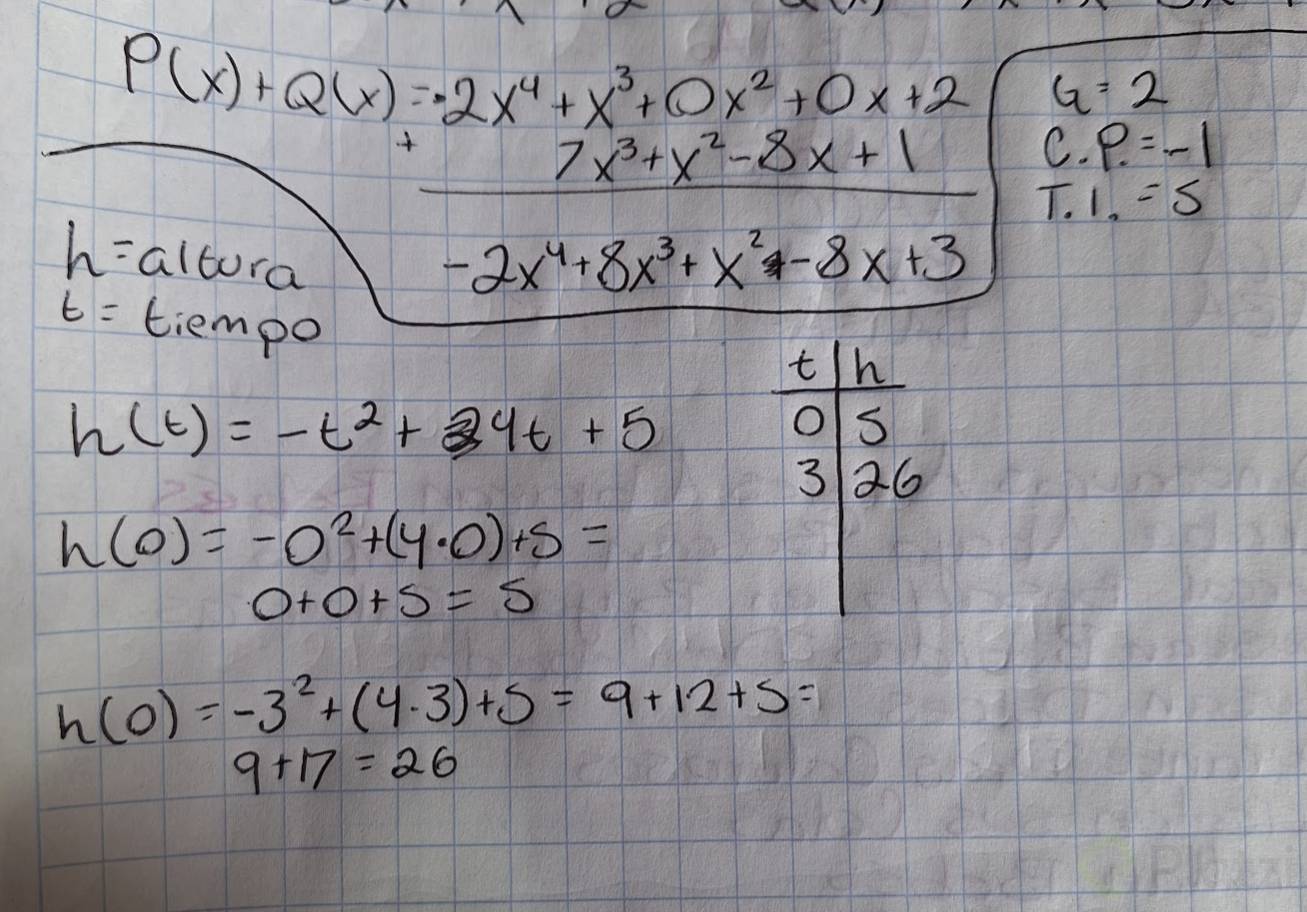 P(x)+Q(x)=-2x⁴+x³+0x²+0x+2
+ 7x³+x²-8x+1
-2x⁴+8x³+x²-8x+3
G=2
C.P.=-1
T.I.=5
h=altura
t=tiempo
h(t)=-t²+4t+5
t | h
0 | 5
3 | 26
h(0)=-0²+(4·0)+5=
0+0+5=5
h(0)=-3²+(4·3)+5=9+12+5=
9+17=26